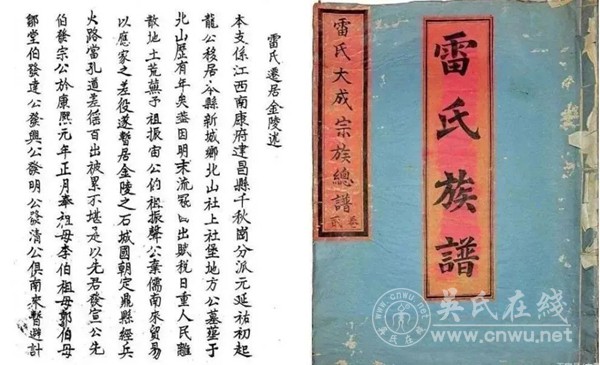 雷氏遷居金陵述
本支係江西南康府建昌縣千秋崗分派元延祐初起
龍公移居今縣新城鄉北山社上社堡地方公墓塟于
北山歷有年矣葢因明末流寇日出賦稅日重人民離
散地土荒蕪予祖振宙公伯祖振聲公棄儒南來貿易
以應家之差役遂暫居金陵之石城國朝定鼎縣經兵
火路當孔道差徭百出被累不堪是以先君發宣公先
伯發宗公於康熙元年正月奉祖母李伯祖母郭伯母
鄒堂伯發達公發興公發明公發清公俱南來暫避計
雷氏族譜
雷氏大成宗族總譜
卷貳
吴氏在线
www.cnwu.net